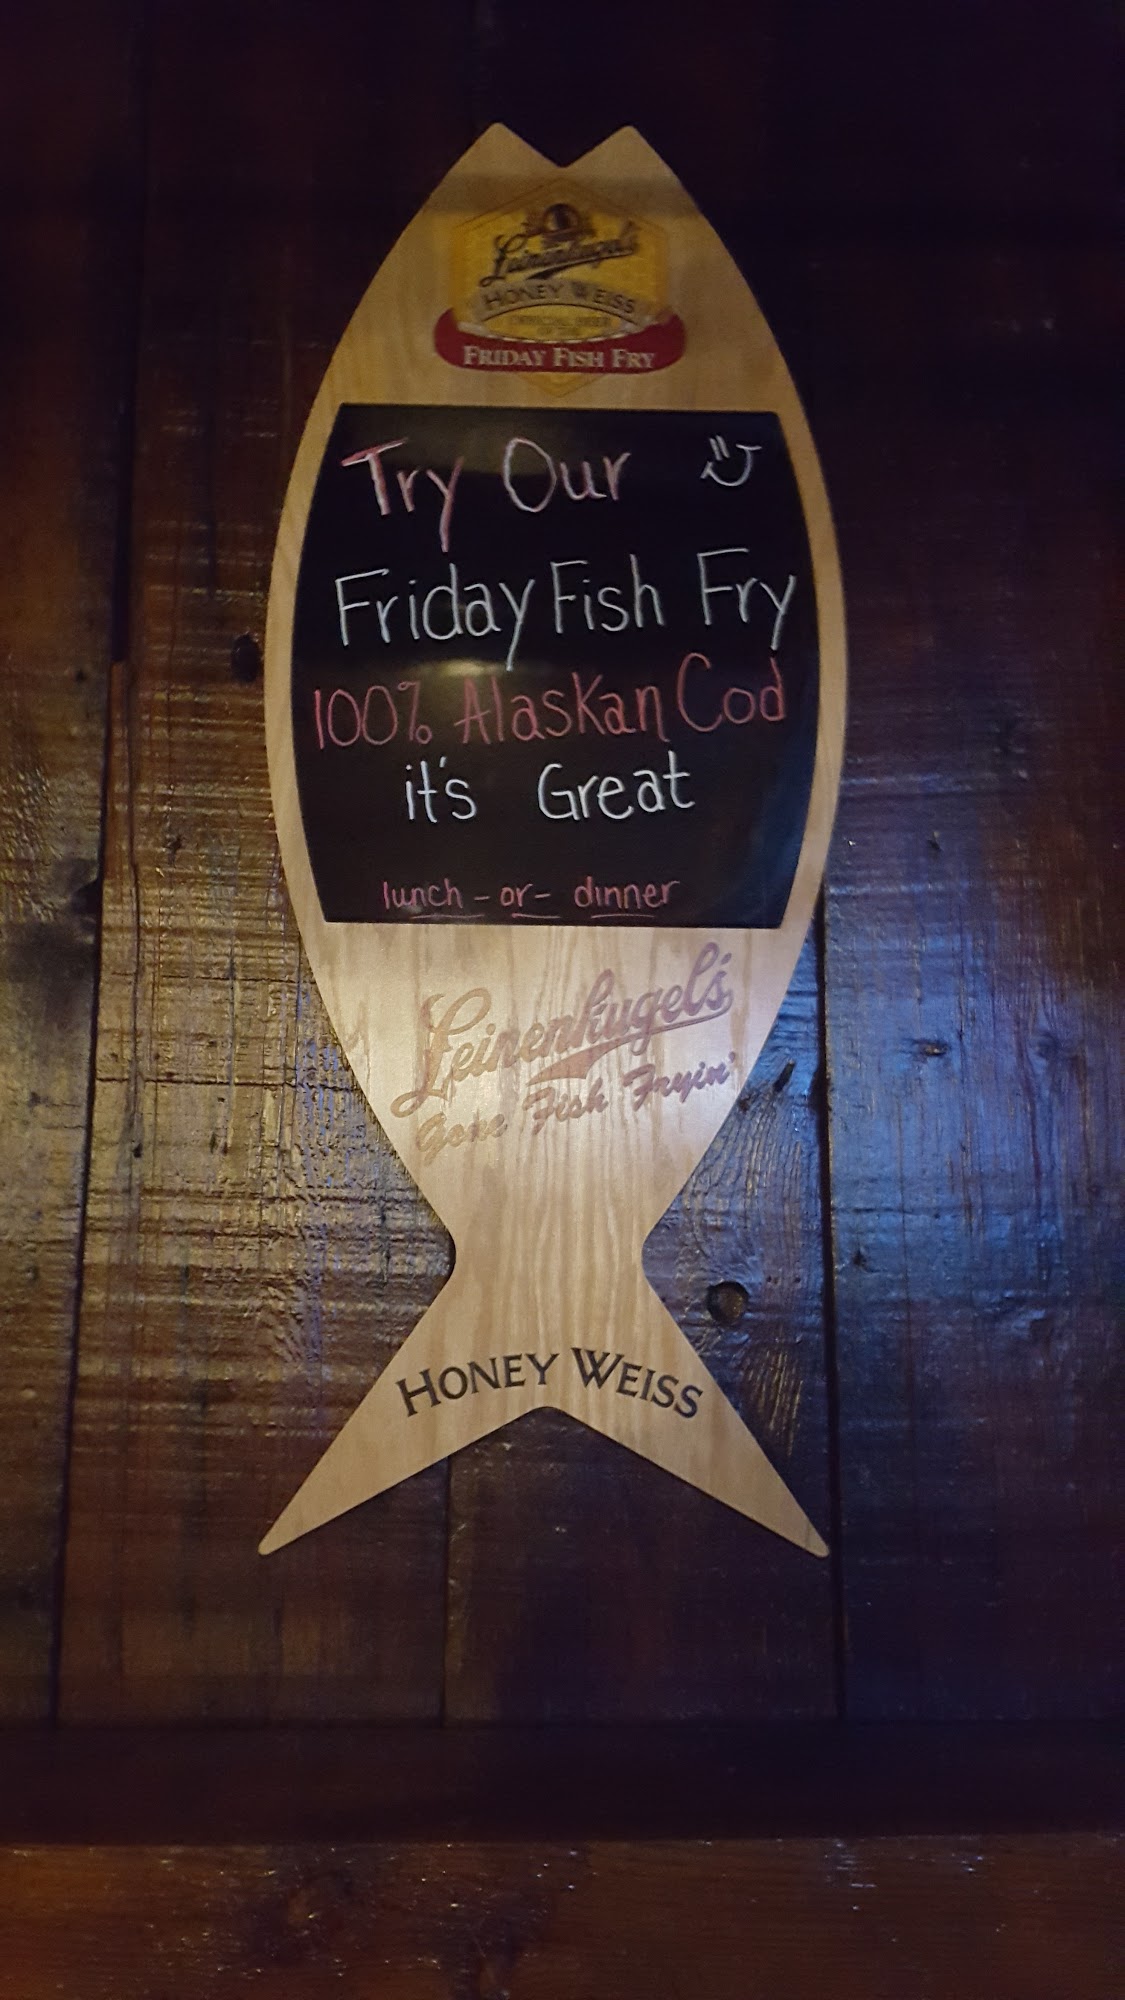 Leinenkugel's
HONEY WEISS
FRIDAY FISH FRY
Try Our
Friday Fish Fry
100% Alaskan Cod
it's Great
lunch - or - dinner
Leinenkugel's
Gone Fish Fryin'
HONEY WEISS